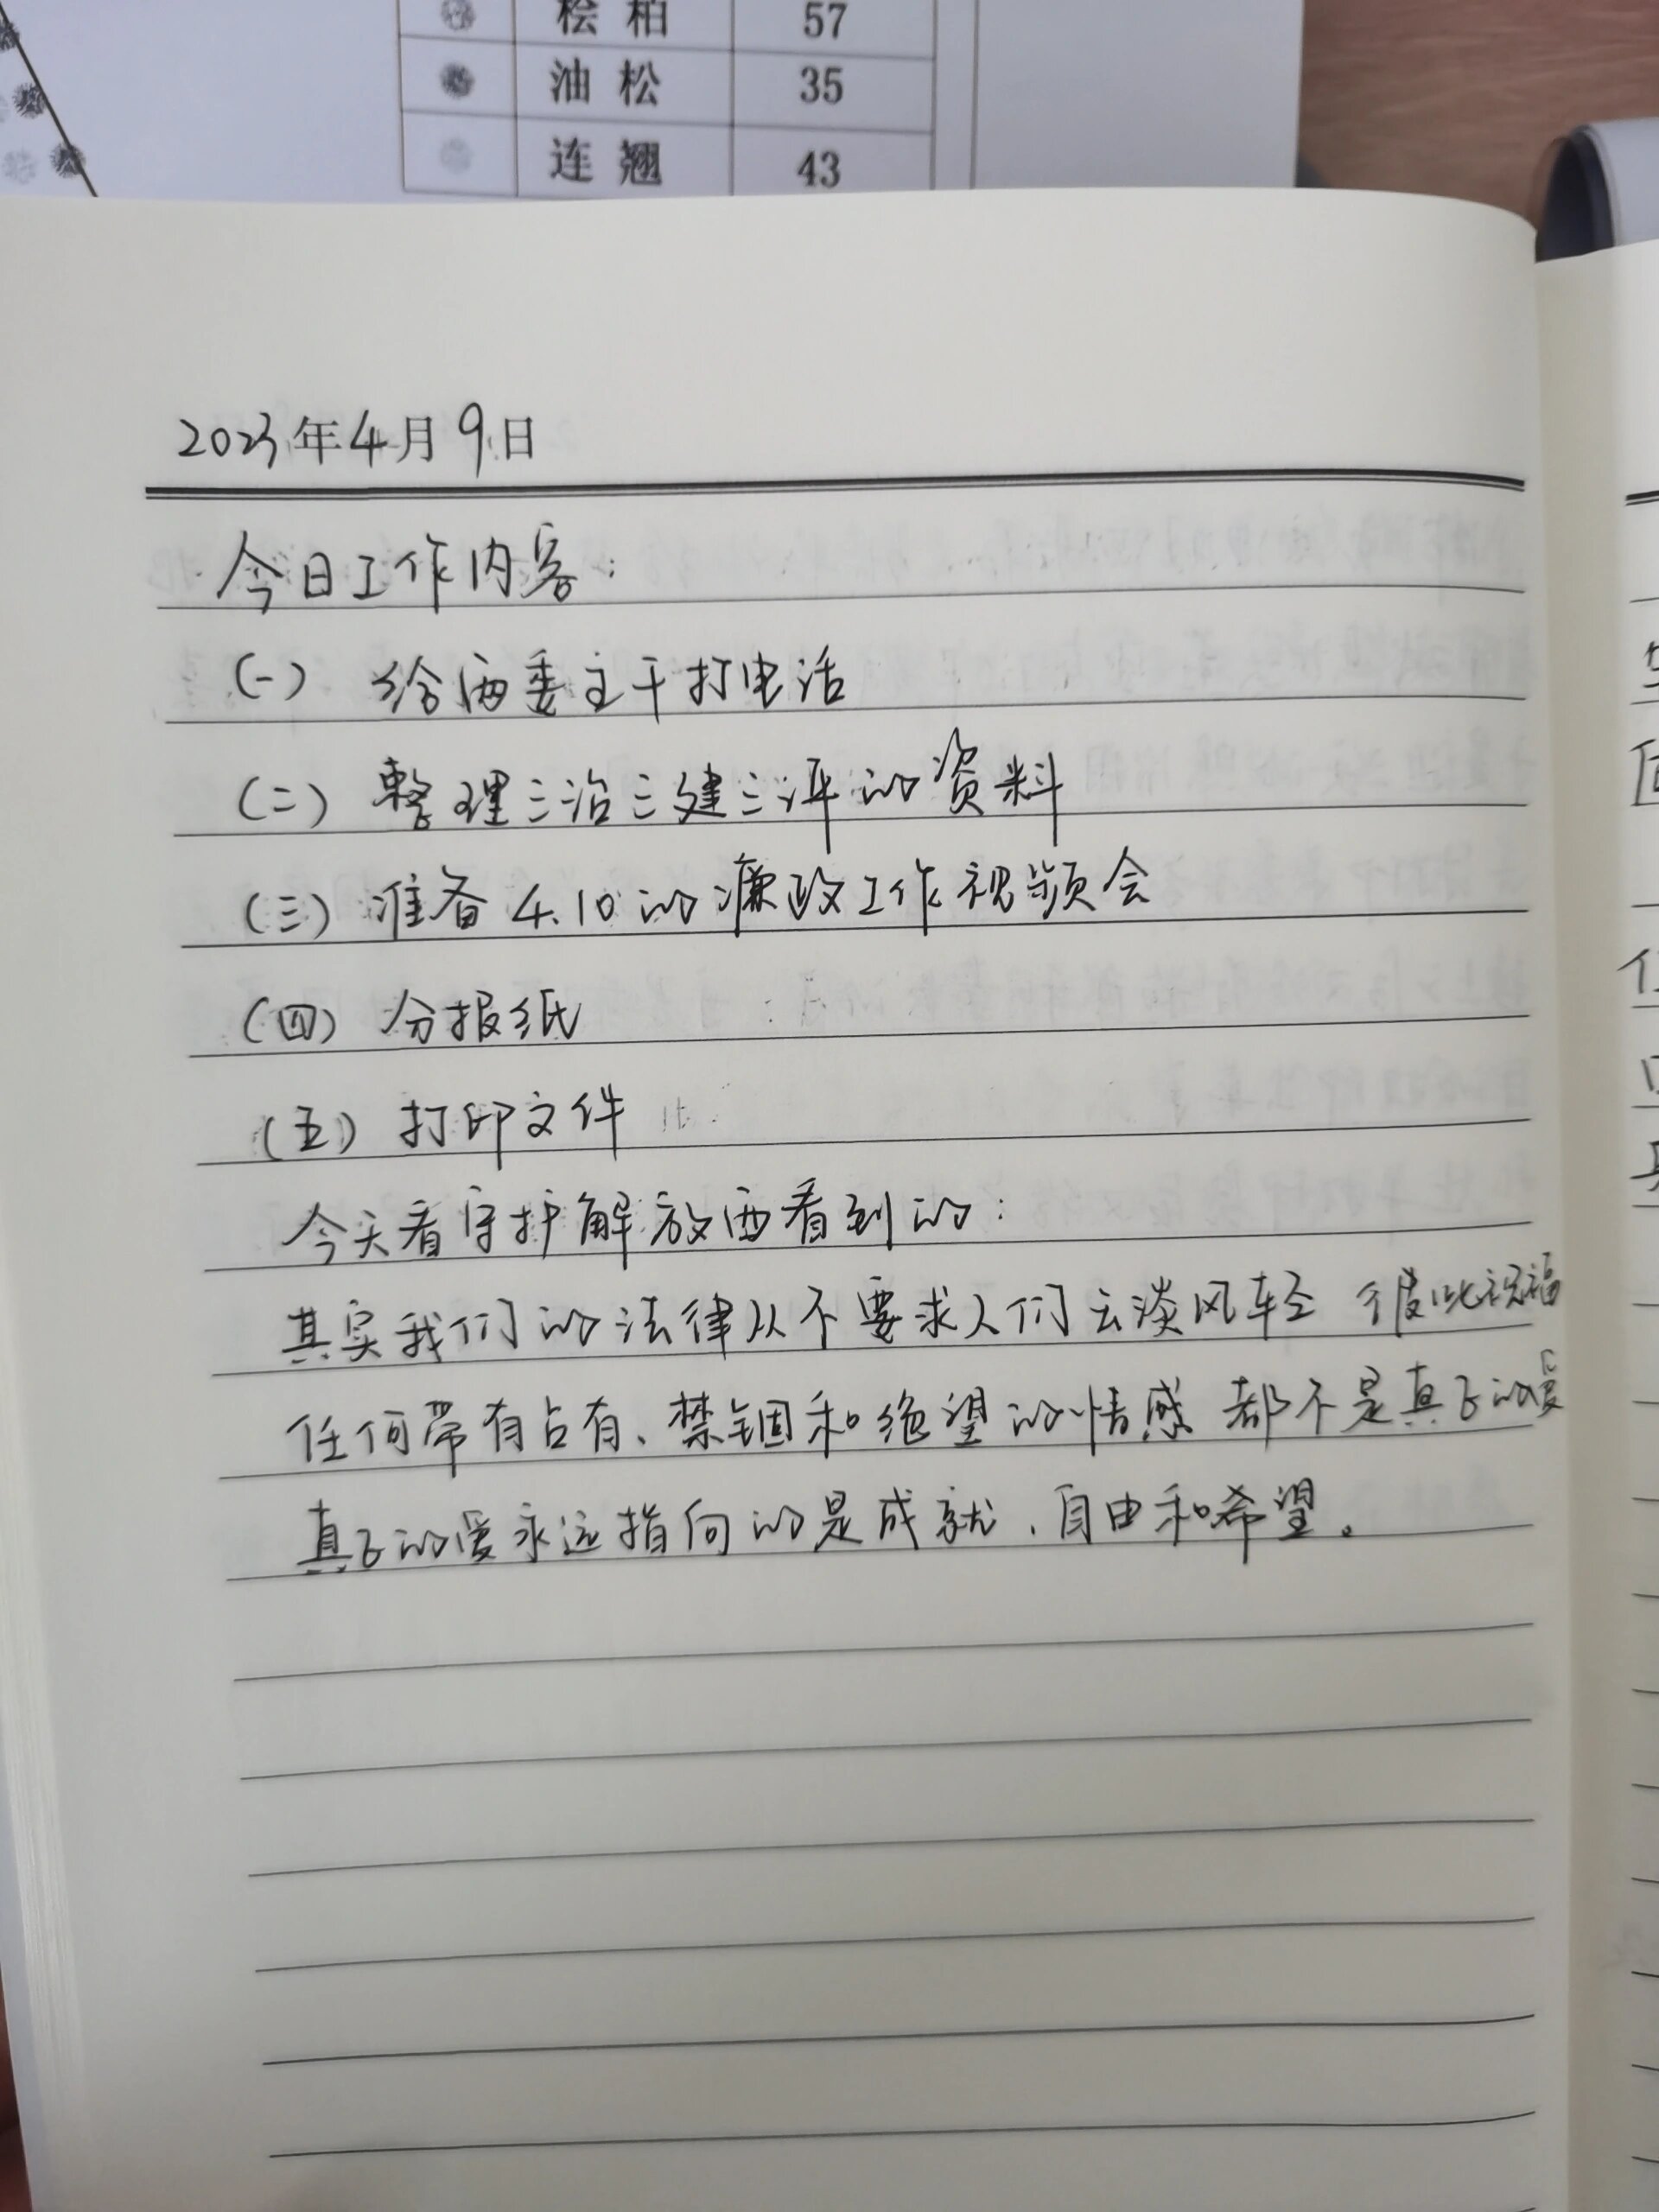 桧 柏 57
油 松 35
连 翘 43
2023年4月9日
今日工作内容:
(一) 给两委主干打电话
(二) 整理三治三建三评的资料
(三) 准备4.10的廉政工作视频会
(四) 分报纸
(五) 打印文件
今天看守护解放西看到的:
其实我们的法律从不要求人们云淡风轻 彼此祝福
任何带有占有、禁锢和绝望的情感 都不是真正的爱
真正的爱永远指向的是成就、自由和希望。